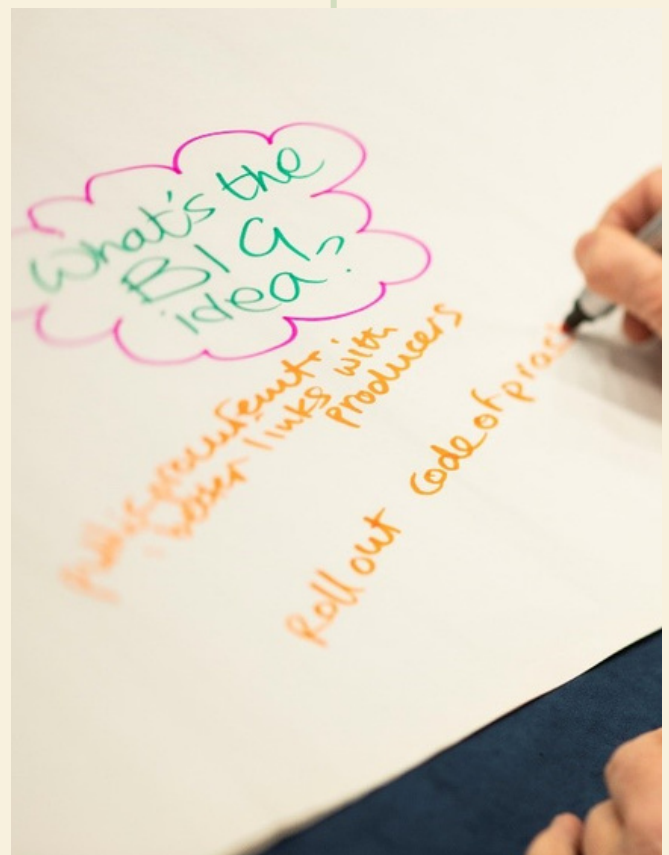 What's the
BIG
idea?
Public procurement -
better links with
producers
Roll out code of prac